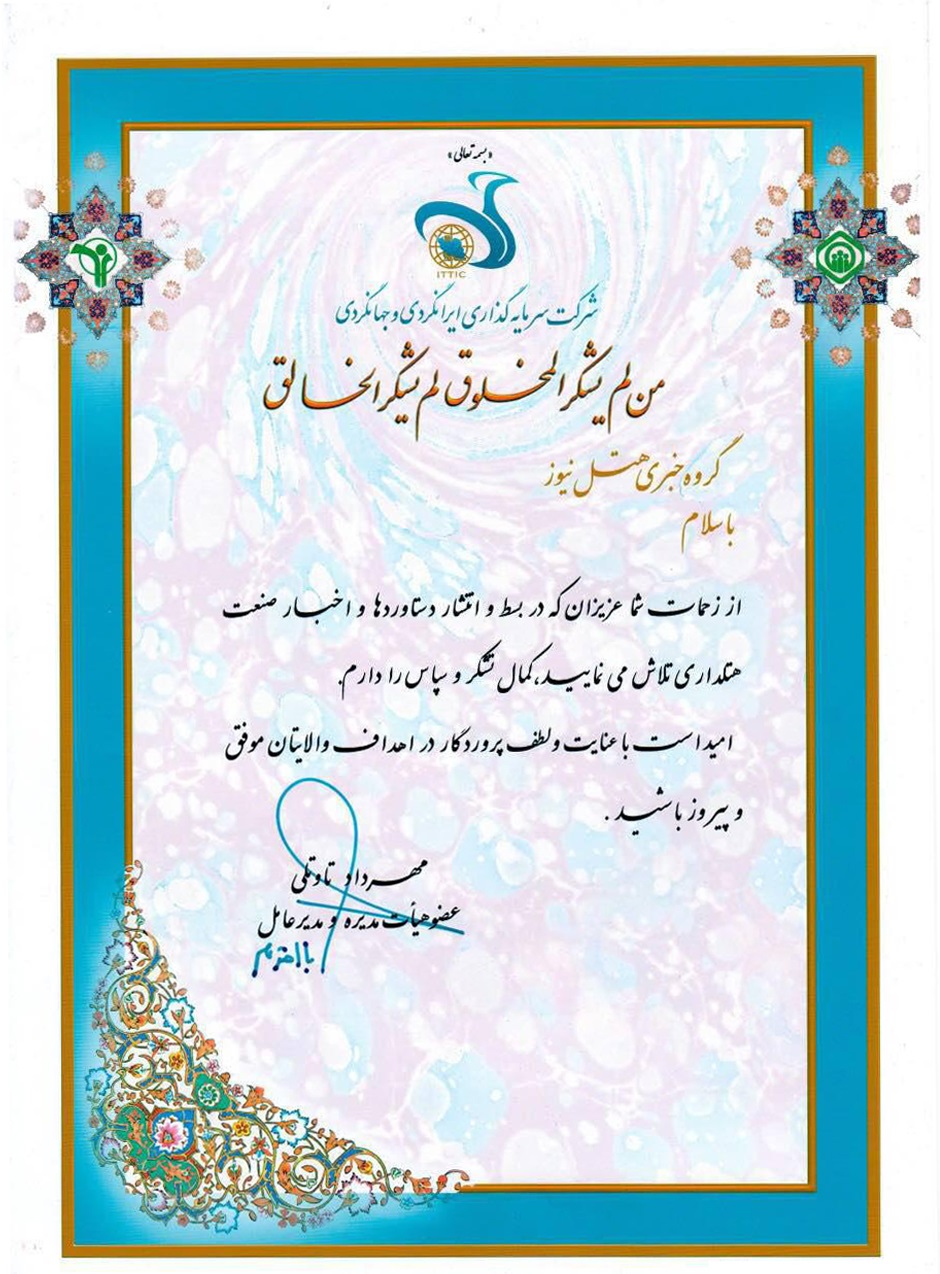 «بسمه تعالی»
ITTIC
شرکت سرمایه گذاری ایرانگردی و جهانگردی
من لم یشکر المخلوق لم یشکر الخالق
گروه خبری هتل نیوز
با سلام
از زحمات شما عزیزان که در بسط و انتشار دستاوردها و اخبار صنعت
هتلداری تلاش می نمایید، کمال تشکر و سپاس را دارم.
امید است با عنایت و لطف پروردگار در اهداف والایتان موفق
و پیروز باشید .
مهرداد تاوتلی
عضو هیأت مدیره و مدیر عامل
با احترام